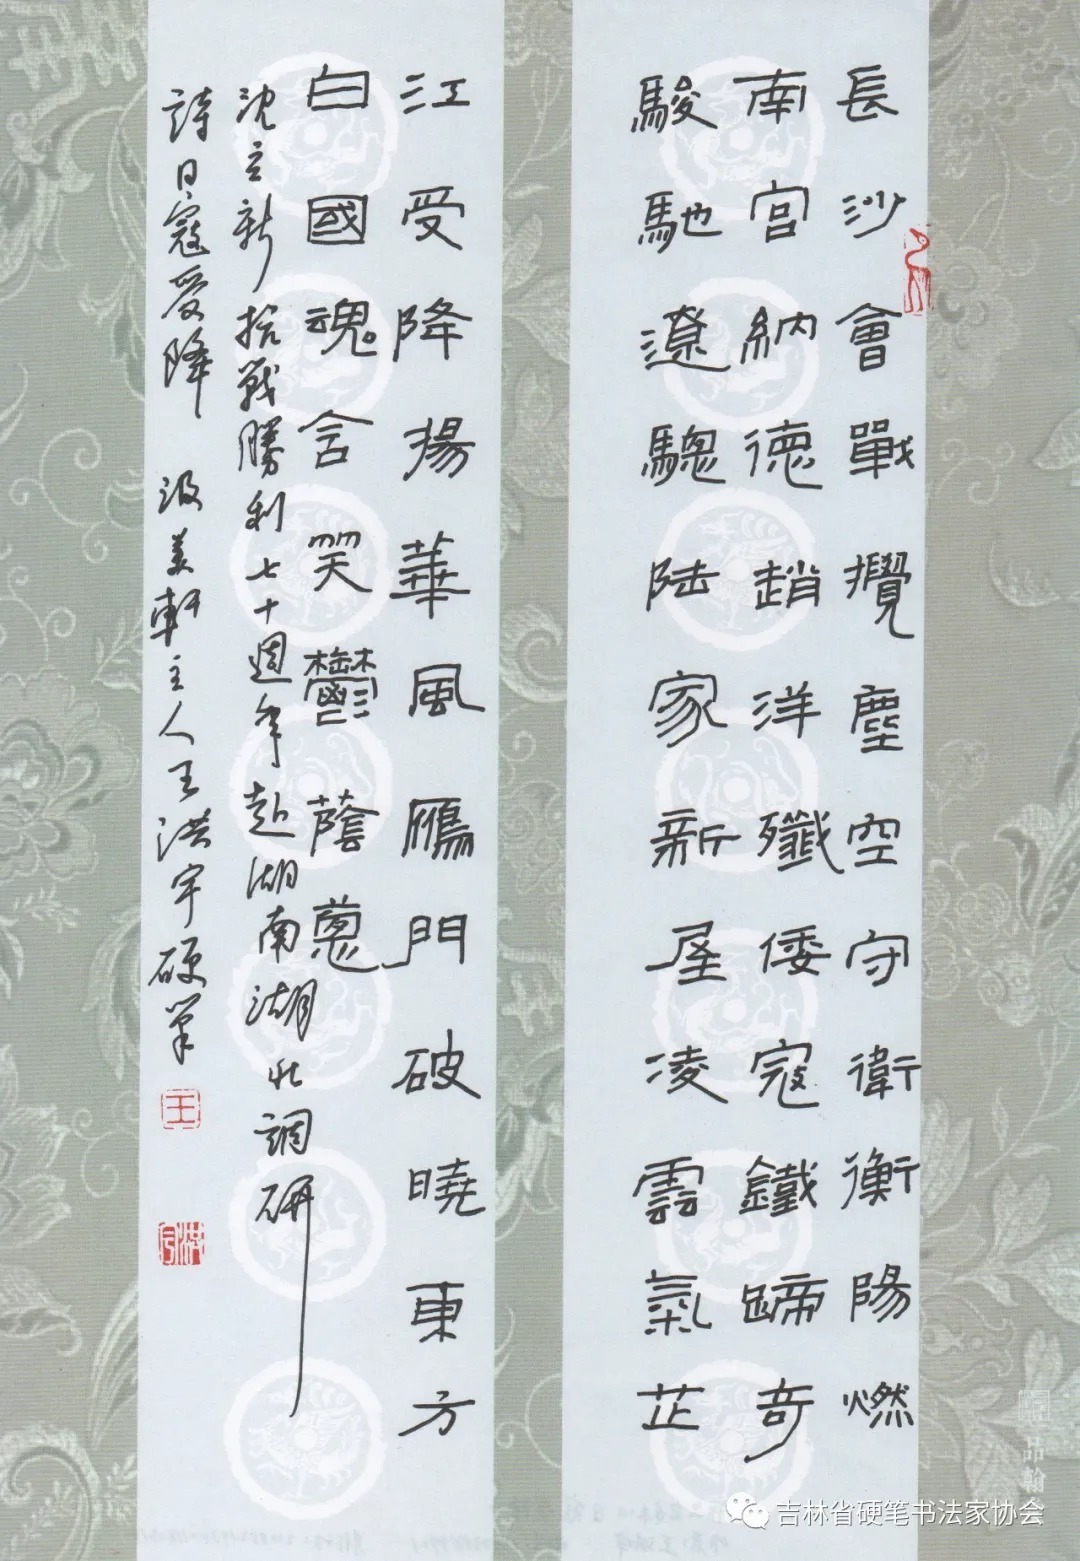 長沙會戰攪塵空守衛衡陽燃
南宫納德趙洋殲倭寇鐵蹄奇
駿馳遼驄陆家新屋凌雲氣芷
江受降揚華風鴈門破曉東方
白國魂含笑鬱蔭蔥
沈立新抗戰勝利七十週年赴湖南湖北調研
詩日寇受降 汲美軒主人王洪宇硬筆
王
吉林省硬笔书法家协会